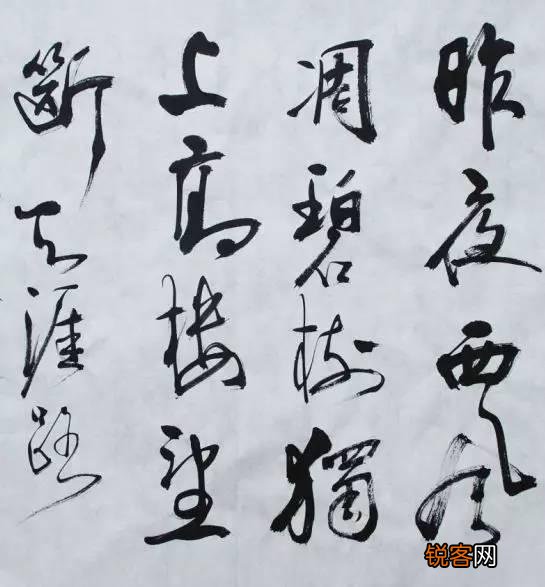 昨夜西風
凋碧樹獨
上高樓望
斷天涯路
锐客网